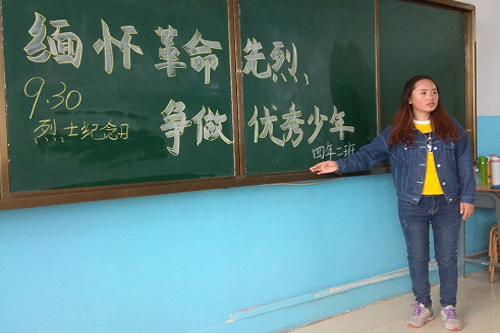 缅怀革命先烈、
争做优秀少年
9.30
烈士纪念日
四年二班